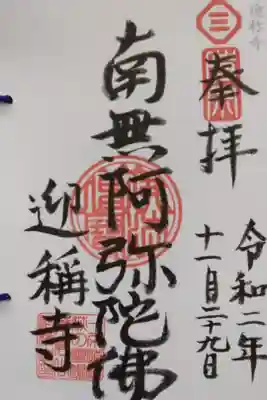 奉拝
令和二年
十一月二十九日
南無阿弥陀佛
迎称寺